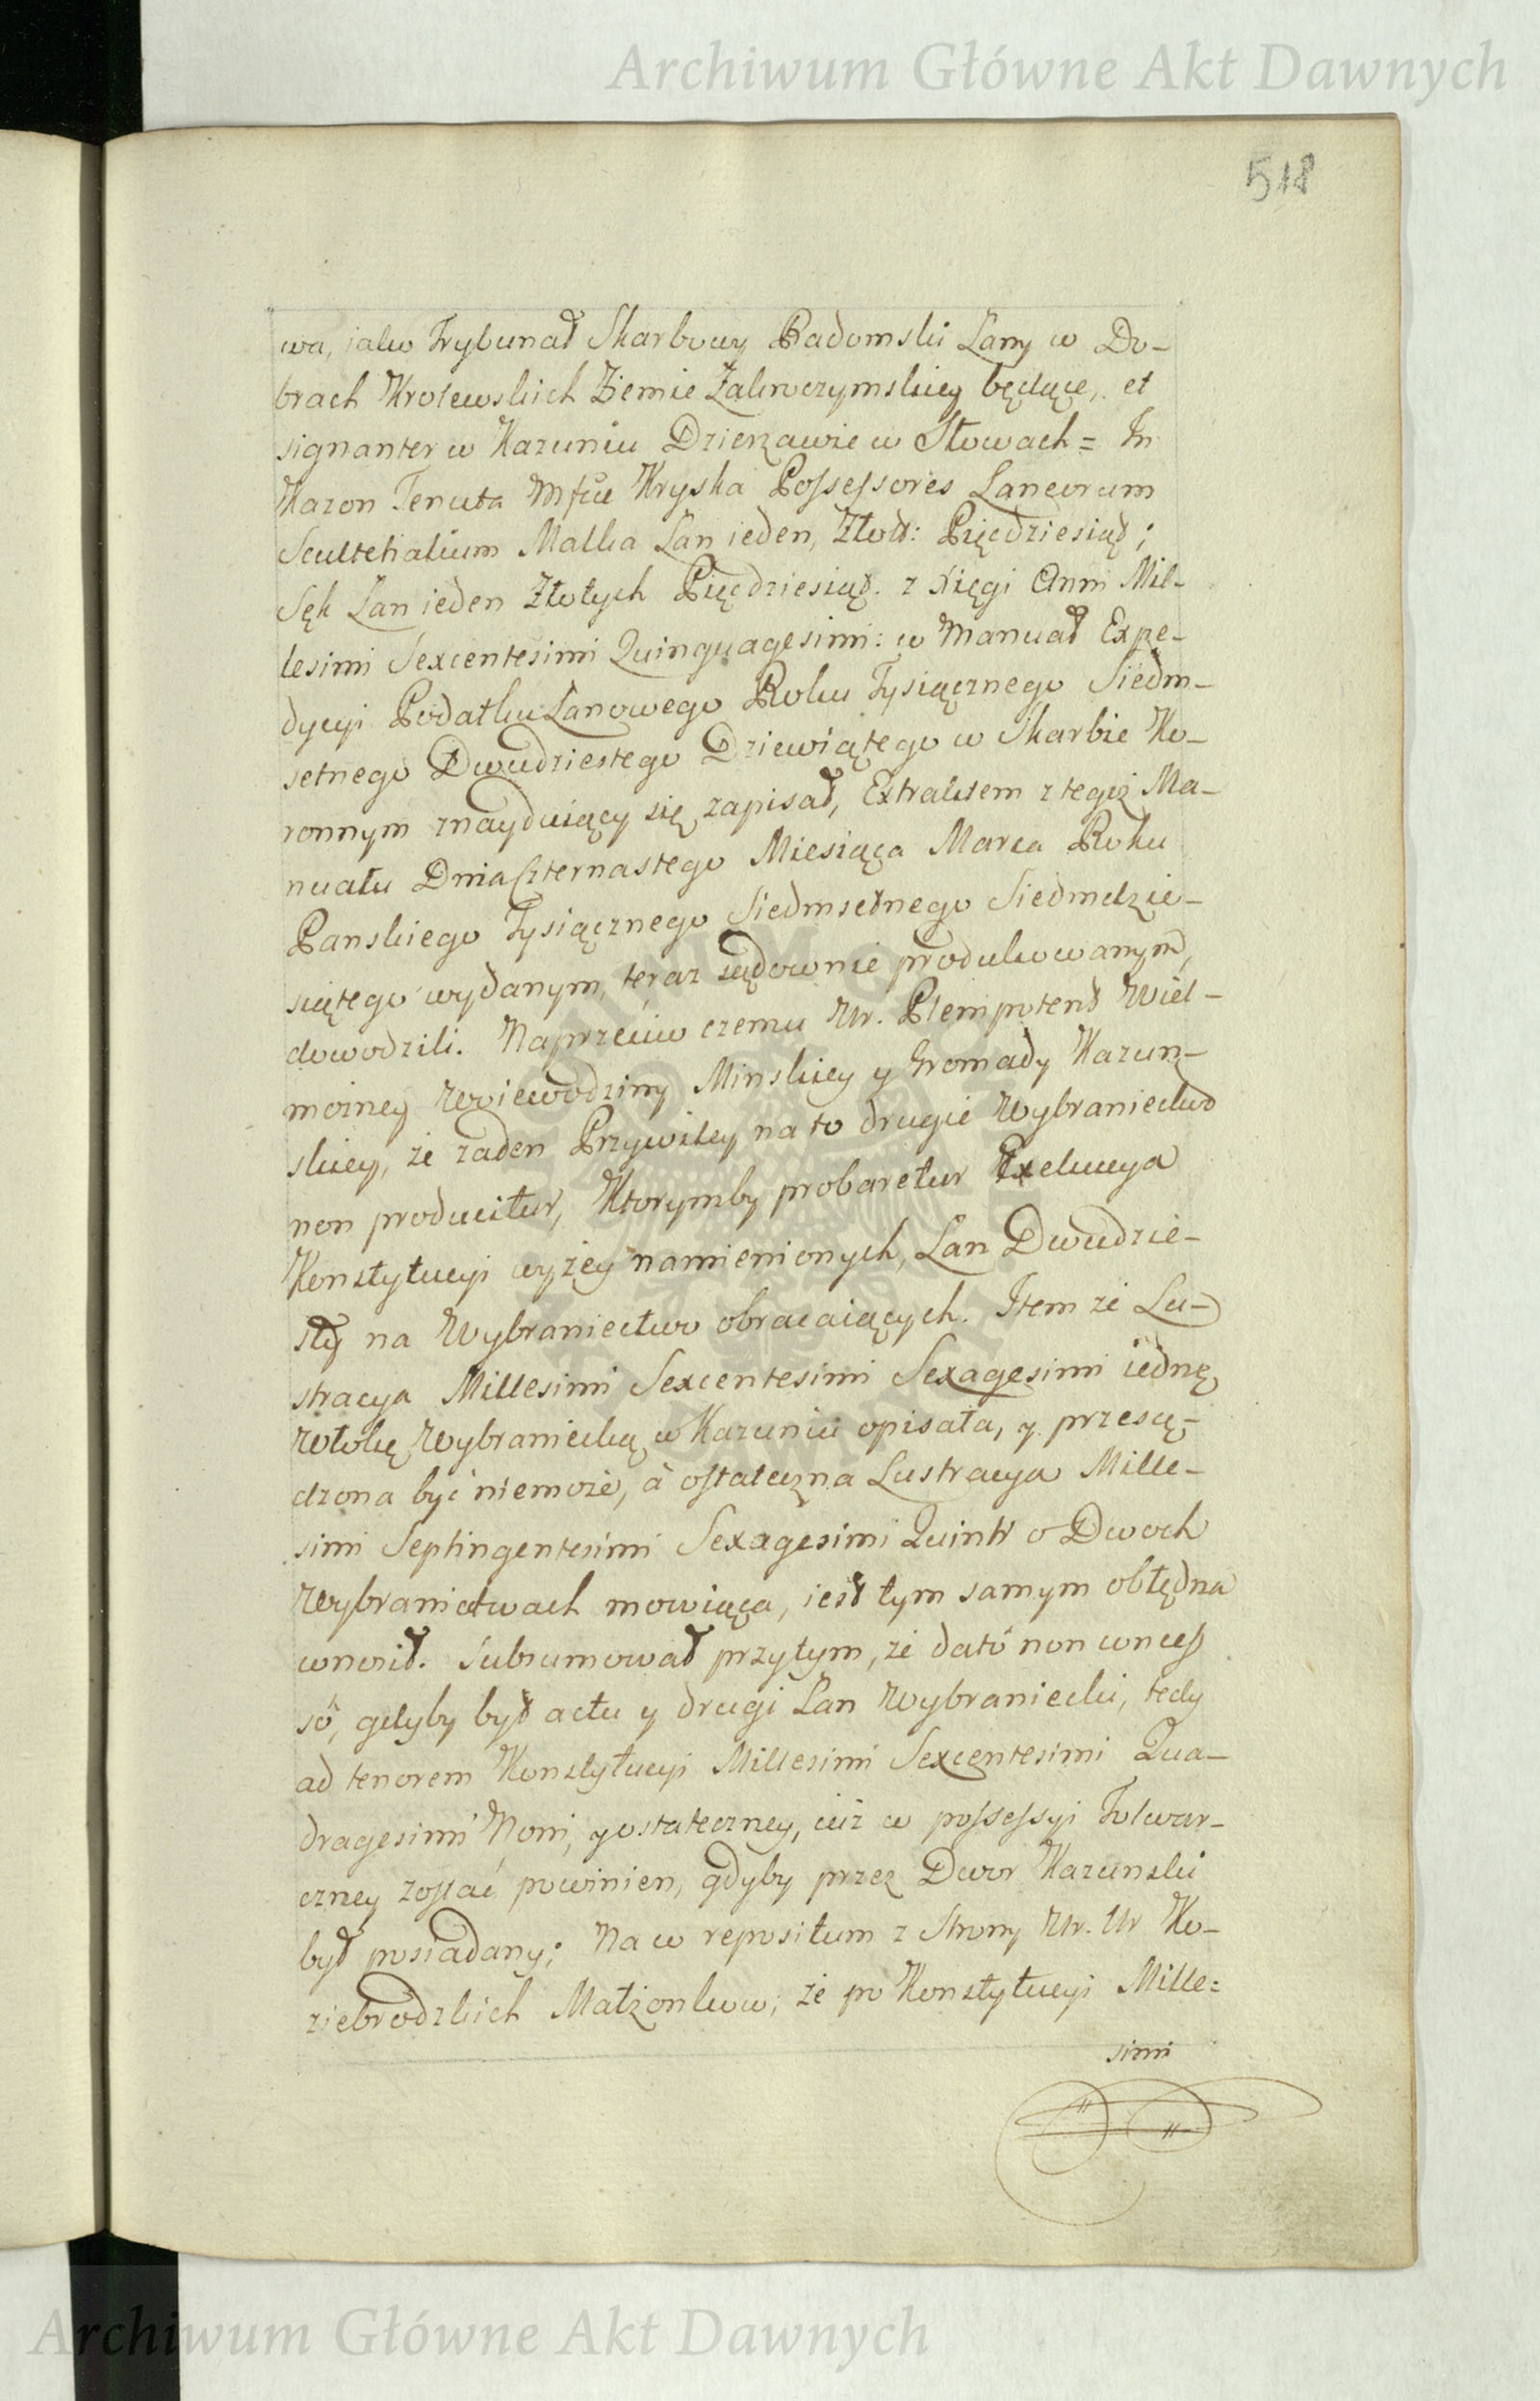 Archiwum Główne Akt Dawnych
518
wa, iako Trybunał Skarbowy Radomski Łany w Do-
brach Krolewskich Ziemie Zakroczymskiey będące, et
signanter w Kazuniu Dzierzawie w Słowach = In
Kazon Tenuta Mfcu Kryska Possessores Laneorum
Scultetialium Malka Łan ieden, Złot: Pięcdziesiąt;
Sęk Łan ieden Złotych Pięcdziesiąt. z Xięgi Anni Mil-
lesimi Sexcentesimi Quinquagesimi: w Manuał Expe-
dycyi Podatku Łanowego Roku Tysiącznego Siedm-
setnego Dwudziestego Dziewiątego w Skarbie Ko-
ronnym znayduiący się zapisał, Extraktem z tegoż Ma-
nuału Dnia Czternastego Miesiąca Marca Roku
Panskiego Tysiącznego Siedmsetnego Siedmdzie-
siątego wydanym, teraz sądownie produkowanym,
dowodzili. Naprzeciw czemu Ur. Plenipotent Wiel-
mozney Woiewodziny Minskiey y Gromady Kazun-
skiey, że zaden Przywiley na to drugie Wybraniectwo
non producitur, Ktorymby probaretur Exekucya
Konstytucyi wyżey namienionych, Łan Dwudzie-
sty na Wybraniectwo obracaiących. Item że Lu-
stracya Millesimi Sexcentesimi Sexagesimi iednę
Włokę Wybraniecką w Kazuniu opisała, y przesą-
dzona być niemoże, à ostateczna Lustracya Mille-
simi Septingentesimi Sexagesimi Quinti o Dwoch
Wybranictwach mowiąca, iest tym samym obłędna
wnosił. Subsumował przytym, że datô non conces
sô, gdyby był actu y drugi Łan Wybraniecki, tedy
ad tenorem Konstytucyi Millesimi Sexcentesimi Qua-
dragesimi Noni, y ostateczney, iuż w possessyi Folwar-
czney zostać powinien, gdyby przez Dwor Kazunski
był posiadany; Na co repositum z Strony Ur. Ur Ko-
ziebrodzkich Małżonkow; że po Konstytucyi Mille=
simi
Archiwum Główne Akt Dawnych